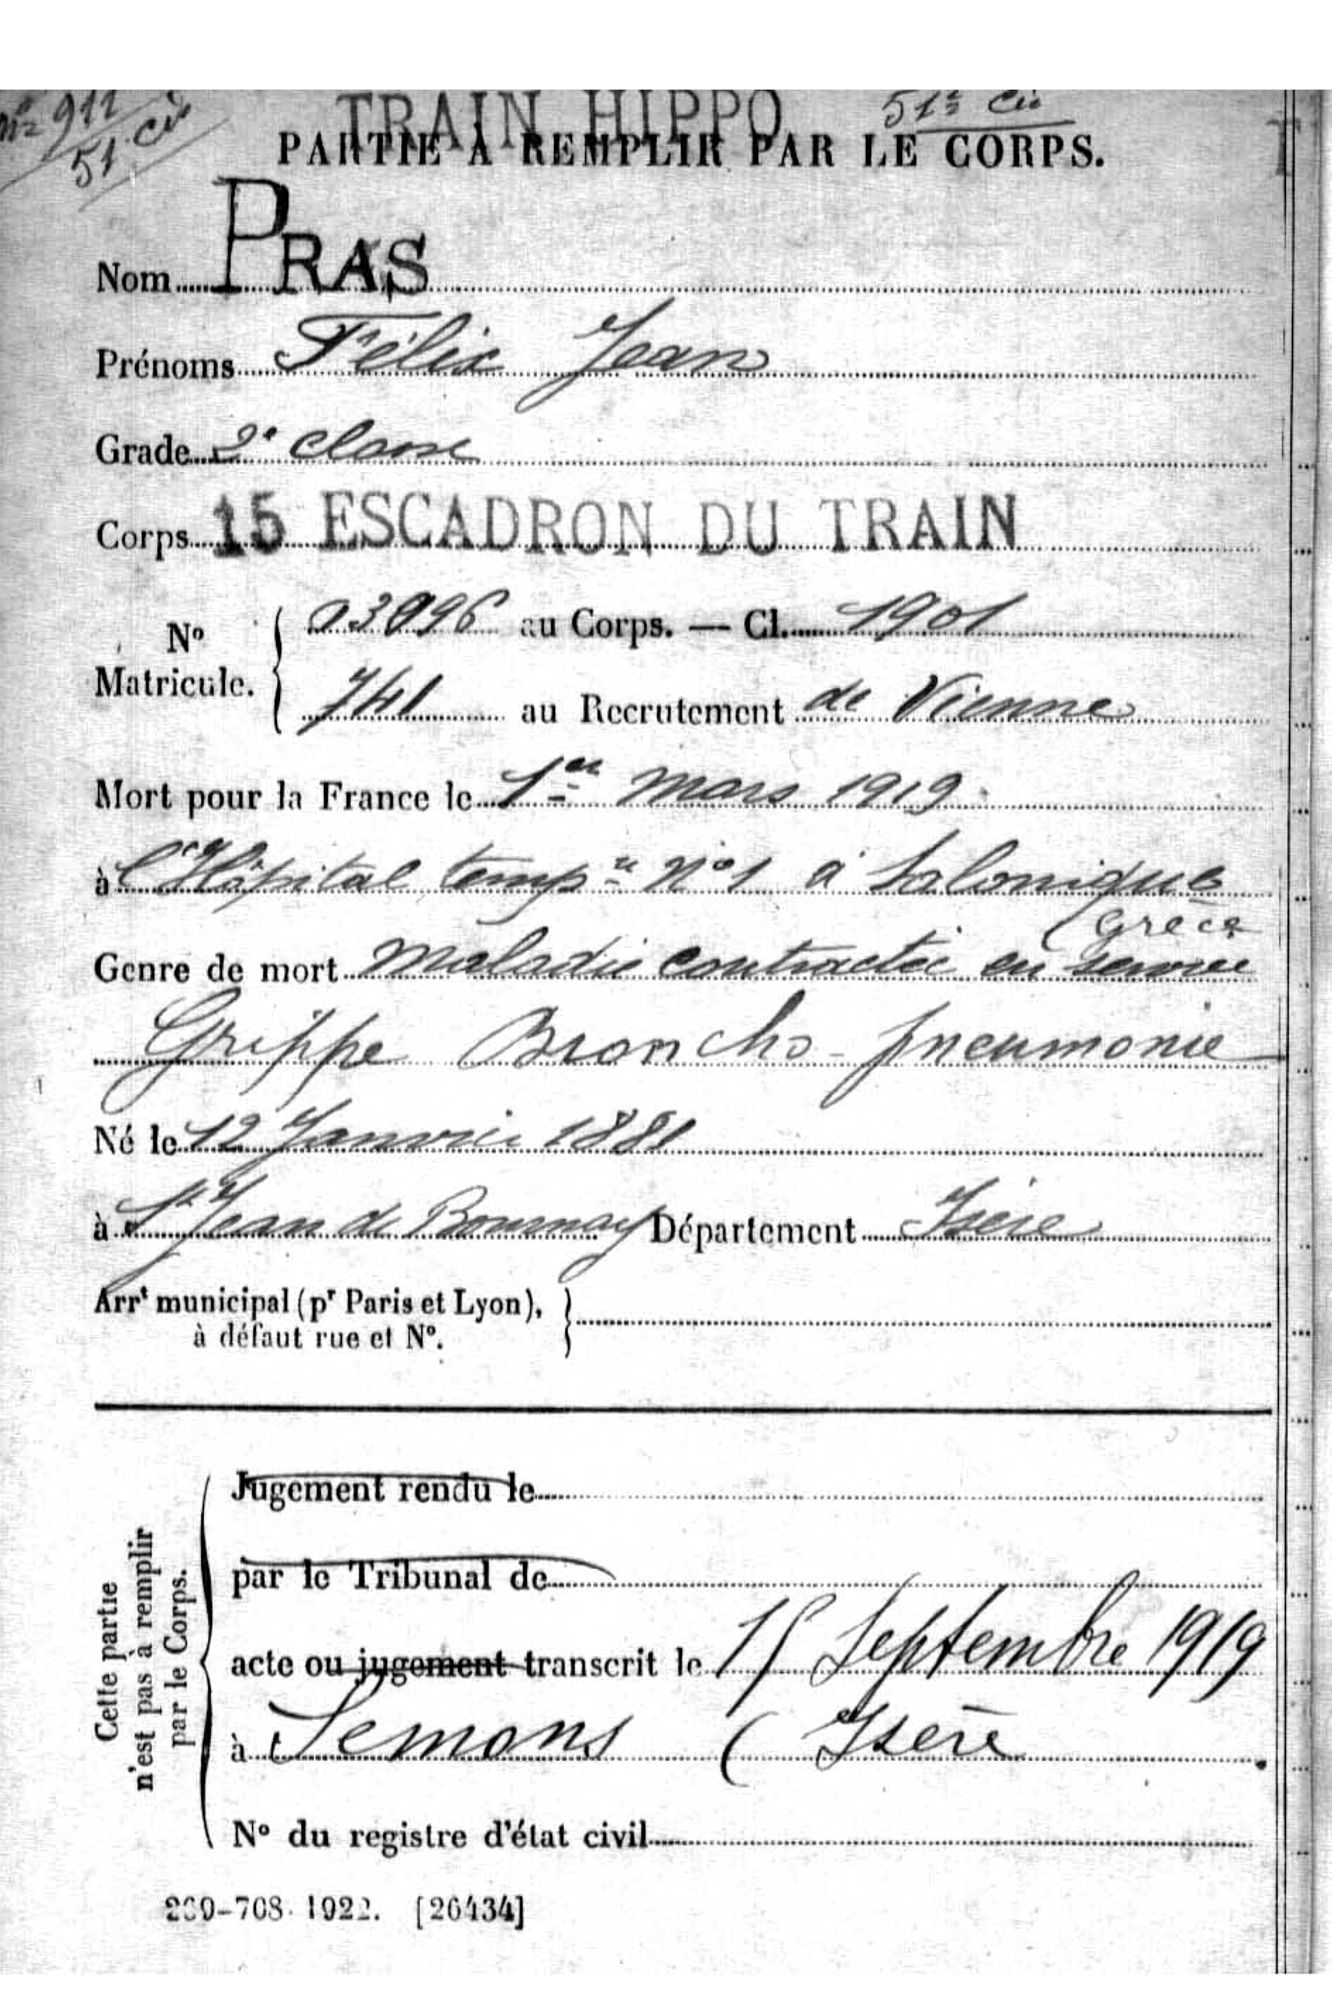 n° 911
51 cie
TRAIN HIPPO 51e cie
PARTIE À REMPLIR PAR LE CORPS.
Nom PRAS
Prénoms Félix Jean
Grade 2e classe
Corps 15 ESCADRON DU TRAIN
N° Matricule. { 03996 au Corps. — Cl. 1901
741 au Recrutement de Vienne
Mort pour la France le 1er mars 1919
à l'Hôpital temp re N°1 à Salonique
(Grèce
Genre de mort maladie contractée en service
Grippe Broncho-pneumonie
Né le 12 Janvier 1881
à St Jean de Bournay Département Isère
Arrt municipal (pr Paris et Lyon), }
à défaut rue et N°.
Cette partie
n'est pas à remplir
par le Corps.
Jugement rendu le
par le Tribunal de
acte ou jugement transcrit le 15 Septembre 1919
à Semons ( Isère
N° du registre d'état civil
269-708. 1922. [26434]